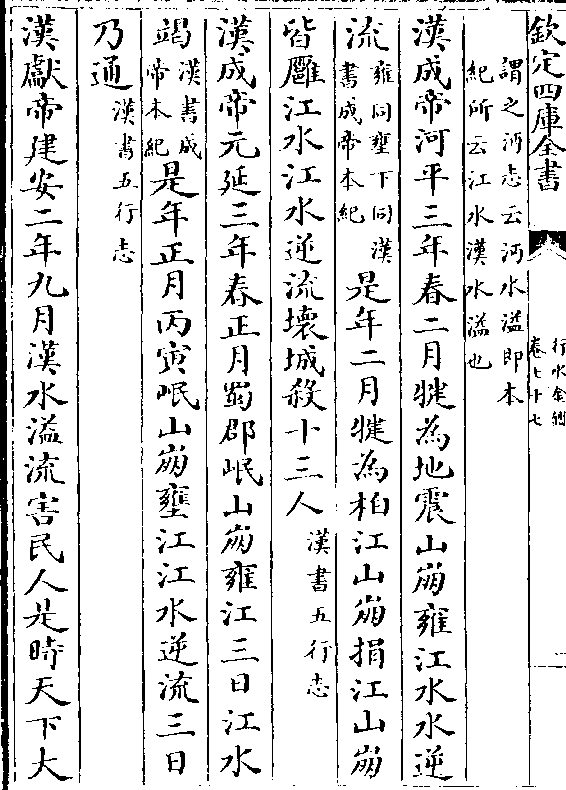 欽定四庫全書
行水金鑑
卷七十七
二
謂之沔志云沔水溢即本
紀所云江水漢水溢也
漢成帝河平三年春二月犍為地震山崩雍江水水逆
流雍同壅下同漢
書成帝本紀是年二月犍為柏江山崩捐江山崩
皆壅江水江水逆流壞城殺十三人漢書五行志
漢成帝元延三年春正月蜀郡岷山崩雍江三日江水
竭漢書成
帝本紀是年正月丙寅岷山崩壅江江水逆流三日
乃通漢書五行志
漢獻帝建安二年九月漢水溢流害民人是時天下大